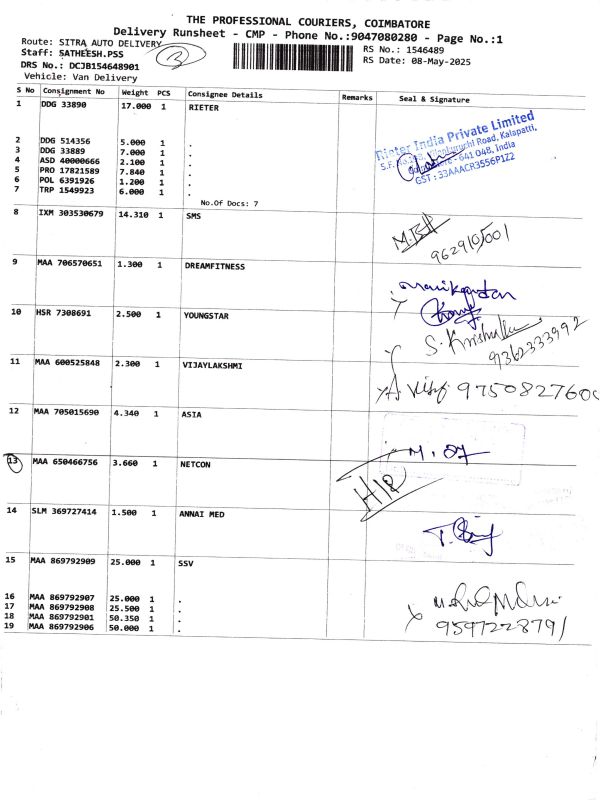 THE PROFESSIONAL COURIERS, COIMBATORE
Delivery Runsheet - CMP - Phone No.:9047080280 - Page No.:1
Route: SITRA AUTO DELIVERY
RS No.: 1546489
Staff: SATHEESH.PSS
3
RS Date: 08-May-2025
DRS No.: DCJB154648901
Vehicle: Van Delivery
S No Consignment No Weight PCS Consignee Details Remarks Seal & Signature
1 DDG 33890 17.000 1 RIETER
Rieter India Private Limited
2 DDG 514356 5.000 1 .
3 DDG 33889 7.000 1 .
4 ASD 40000666 2.100 1 .
5 PRO 17821589 7.840 1 .
6 POL 6391926 1.200 1 .
7 TRP 1549923 6.000 1 .
Kalapatti,
Coimbatore - 641 048, India
GST : 33AAACR3556P1Z2
No.Of Docs: 7
8 IXM 303530679 14.310 1 SMS
9 MAA 706570651 1.300 1 DREAMFITNESS
Manikandan
10 HSR 7308691 2.500 1 YOUNGSTAR
9362333992
11 MAA 600525848 2.300 1 VIJAYLAKSHMI
12 MAA 705015690 4.340 1 ASIA
13 MAA 650466756 3.660 1 NETCON
14 SLM 369727414 1.500 1 ANNAI MED
15 MAA 869792909 25.000 1 SSV
16 MAA 869792907 25.000 1 .
17 MAA 869792908 25.500 1 .
18 MAA 869792901 50.350 1 .
19 MAA 869792906 50.000 1 .